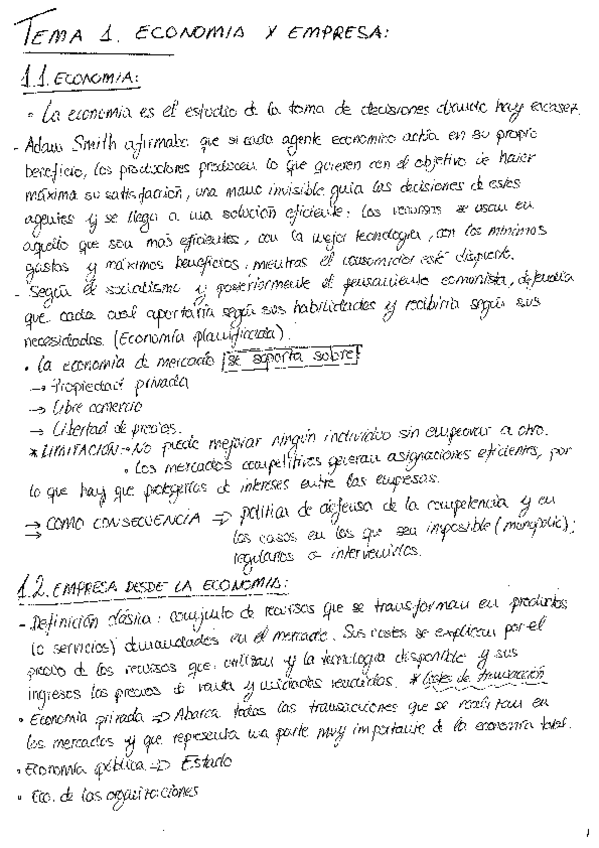 TEMA 1. ECONOMIA Y EMPRESA:
1.1. ECONOMIA:
• La economia es el estudio de la toma de decisiones cuando hay escasez.
- Adam Smith afirmaba que si cada agente economico actúa en su propio
beneficio, los productores producen lo que quieren con el objetivo de hacer
máxima su satisfacción, una mano invisible guia las decisiones de estos
agentes y se llega a una solución eficiente: los recursos se usan en
aquello que son mas eficientes, con la mejor tecnologia, con los minimos
gastos y máximos beneficios, mientras el consumidor esté dispuesto.
- Según el socialismo y posteriormente el pensamiento comunista, defendia
que cada cual aportaria según sus habilidades y recibiria según sus
necesidades. (Economía planificada).
• La economia de mercado se soporta sobre:
→ Propiedad privada
→ Libre comercio
→ Libertad de precios.
* LIMITACIÓN → No puede mejorar ningún individuo sin empeorar a otro.
• Los mercados competitivos generan asignaciones eficientes, por
lo que hay que protegerlos de intereses entre las empresas.
→ COMO CONSECUENCIA ⇒ politica de defensa de la competencia y en
→ los casos en los que sea imposible (monopolio);
regularlos o intervenirlos.
1.2. EMPRESA DESDE LA ECONOMIA:
- Definición clásica: conjunto de recursos que se transforman en productos
(o servicios) demandados en el mercado. Sus costes se explican por el
precio de los recursos que utilizan y la tecnologia disponible y sus
ingresos los precios de venta y unidades vendidas. * Costes de transacción
• Economia privada ⇒ Abarca todas las transacciones que se realizan en
los mercados y que representa una parte muy importante de la economia total.
• Economía pública ⇒ Estado
• Eco. de las organizaciones